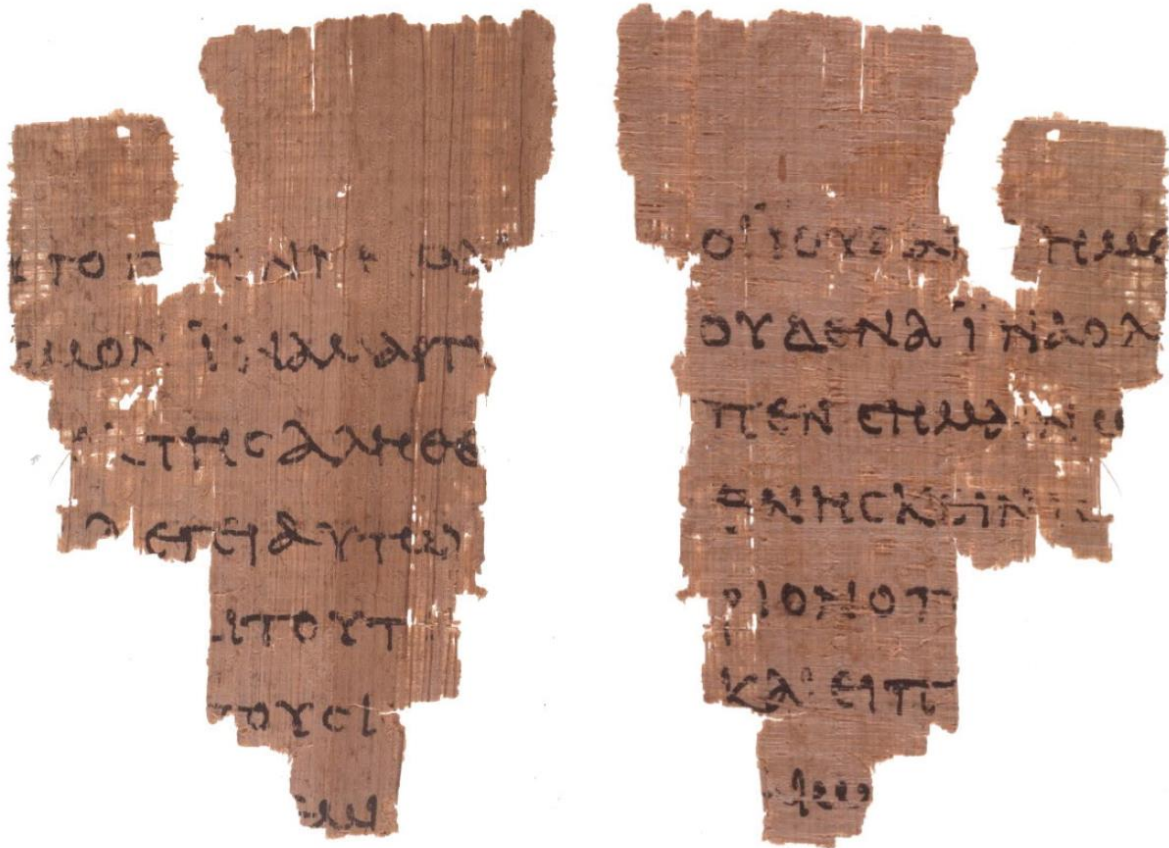 ΤΟ Γ ΝΝΗ
ϹΜΟΝ ΪΝΑ ΜΑΡΤΥ
Κ ΤΗϹ ΑΛΗΘΕ
ΛΕΓΕΙ ΑΥΤΩ
ΑΙ ΤΟΥΤ
ΤΟΥϹ Ι
ΕΜΙ
ΟΙ ΪΟΥΔΑΙ ΗΜΕ
ΟΥΔΕΝΑ ΪΝΑ Ο Λ
ΠΕΝ ϹΗΜΑΙΝΩ
ΘΝΗϹΚΕΙΝ ΙϹ
ΡΙΟΝ Ο Π
ΚΑΙ ΕΙΠ